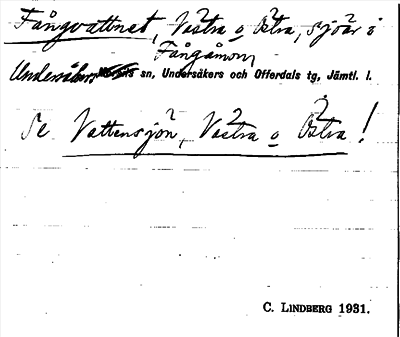 Fångvattnet, Västra o Östra, sjöar i
Fångåmon,
Undersåkers sn, Undersåkers och Offerdals tg, Jämtl. l.
Se Vattensjön, Västra o Östra!
C. LINDBERG 1931.